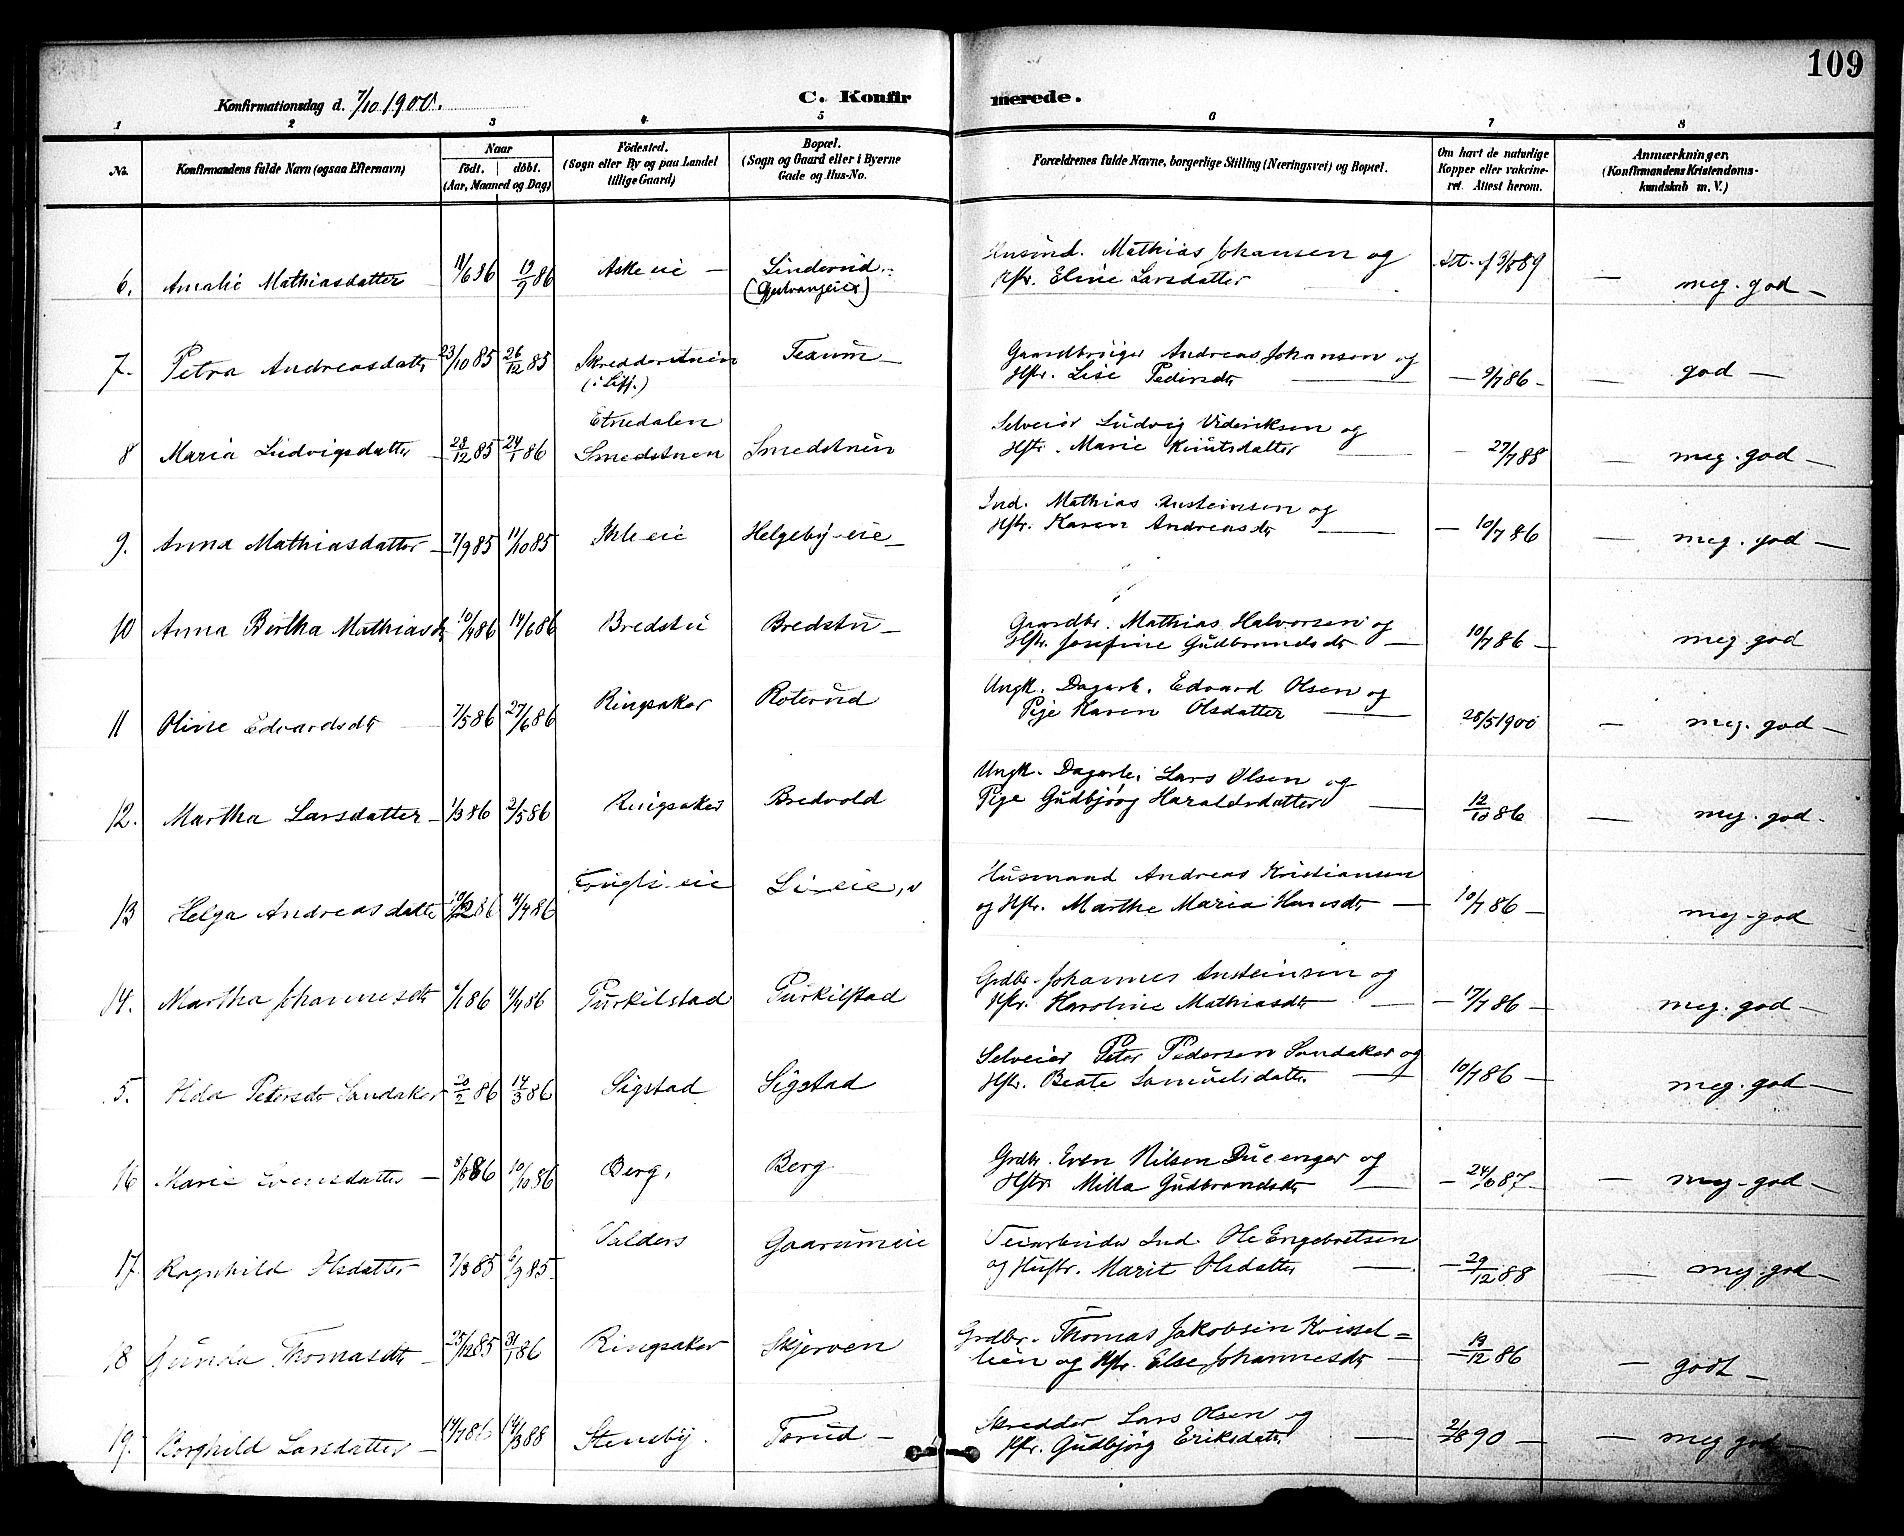 109
Konfirmationsdag d. 7/10 1900.
C. Konfirmerede.
1 2 3 4 5 6 7 8
No.
Konfirmandens fulde Navn (ogsaa Efternavn)
Naar
født. døbt.
(Aar, Maaned og Dag)
Fødested.
(Sogn eller By og paa Landet
tillige Gaard)
Bopæl.
(Sogn og Gaard eller i Byerne
Gade og Hus-No.
Forældrenes fulde Navne, borgerlige Stilling (Næringsvei) og Bopæl.
Om havt de naturlige
Kopper eller vakcine-
ret. Attest herom.
Anmærkninger.
(Konfirmandens Kristendoms-
kundskab m. V.)
6. Amalie Mathiasdatter 11/6 86 86 Aske eie — Linderud.
Husmd. Mathias Johansen og
Hfr. Eline Larsdatter
— meg. god —
7. Petra Andreasdatr 23/10 85 26/12 85 Texum —
Gaardbruger Andreas Johansen og
Hstr. Lise Pedersdtr —
— 9/7 86 — — god —
8 Maria Ludvigsdatter 28/12 85 24/1 86 Etnedalen
Smedstuen Smedstuen
Selveier Ludvig Videriksen og
Hstr. Marie Knutsdatter
— 27/7 88 — meg. god —
9. Anna Mathiasdatter — 7/9 85 11/10 85 Ihle eie Helgeby-eie —
Ind. Mathias Austeinsen og
Hstr. Karen Andreasdtr —
— 10/7 86 — meg. god —
10 Anna Birtha Mathiasdtr 10/4 86 14/6 86 Bredstu Bredstu —
Gaardbr. Mathias Halvorsen og
Hstr. Josefine Gudbrandsdtr —
10/7 86 — meg. god
11 Oline Edvardsdtr 7/5 86 27/6 86 Ringsaker Roterud
Ungk. Dagarb. Edvard Olsen og
Pige Karen Olsdatter —
28/5 1900 — meg. god —
12. Martha Larsdatter — 1/3 86 2/5 86 Ringsaker Bredvold
Ungk. Dagarb. Lars Olsen og
Pige Gudbjørg Haraldsdatter —
12/10 86 — meg. god —
13 Helga Andreasdatter 86 4/4 86 Li-eie
Husmand Andreas Kristiansen
og Hstr. Marthe Maria Hansdtr —
10/7 86 — meg-god
14. Martha Johannesdtr 86 86 Purkilstad Purkilstad
Grdbr. Johannes Austeinsen og
Hfr. Karoline Mathiasdtr —
— 17/7 86 — meg. god —
5. Hilda Petersdtr Sandaker 20/2 86 14/3 86 Sigstad Sigstad
Selveier Peter Pedersen Sandaker og
Hstr. Beate Samuelsdatter —
10/7 86 — meg. god —
16 Marie Evensdatter — 8/8 86 10/10 86 Berg, Berg
Grdbr. Even Nilsen Dueenger og
Hstr. Milla Gudbrandsdtr —
— 24/6 87 — — meg. god —
17. Ragnhild Olsdatter 7/8 85 6/9 85 Valders Gaarumeie
Veiarbeider Ind. Ole Engebretsen
og Hustr. Marit Olsdatter —
— 29/12 88 — meg. god —
18 Gunda Thomasdtr — 25/12 85 31/1 86 Ringsaker Skjerven
Grdbr. Thomas Jakobsen Kvissel=
lien og Hfr. Else Johannesdtr —
— 19/12 86 — godt —
19. Borghild Larsdatter — 14/7 86 14/3 88 Stensby. Torud —
Skredder Lars Olsen og
Hfr. Gudbjørg Eriksdatr —
2/8 90 — — meg god —